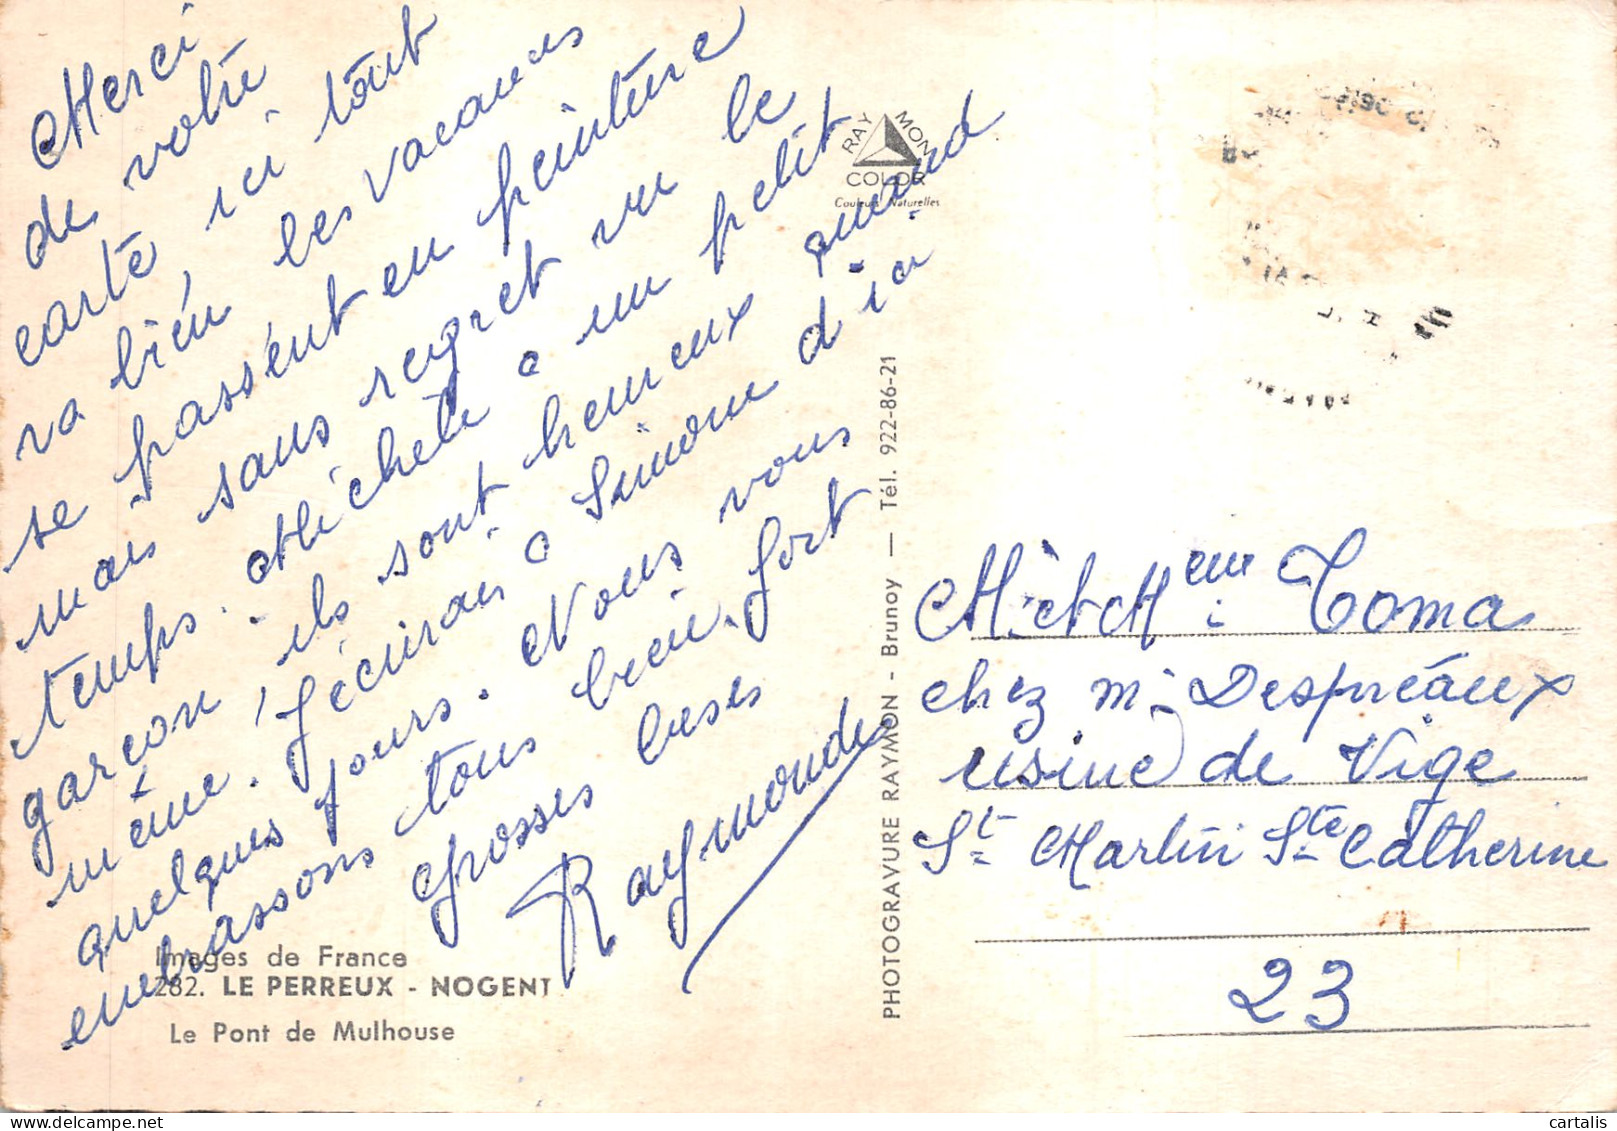 Merci
de votre
carte ici tout
va bien, les vacances
se passent en peinture
mais sans regret vu le
temps. Michele a un petit
garçon, ils sont heureux quand
même. J'écrirai a Simone d'ici
quelques jours. Nous vous
embrassons tous bien fort
grosses bises
Raymonde
Images de France
282. LE PERREUX - NOGENT
Le Pont de Mulhouse
RAYMON
COLOR
Couleurs Naturelles
PHOTOGRAVURE RAYMON - Brunoy — Tél. 922-86-21
M. et Mme Toma
chez m. Despréaux
usine de Vige
St Martin Ste Catherine
23
© cartalis